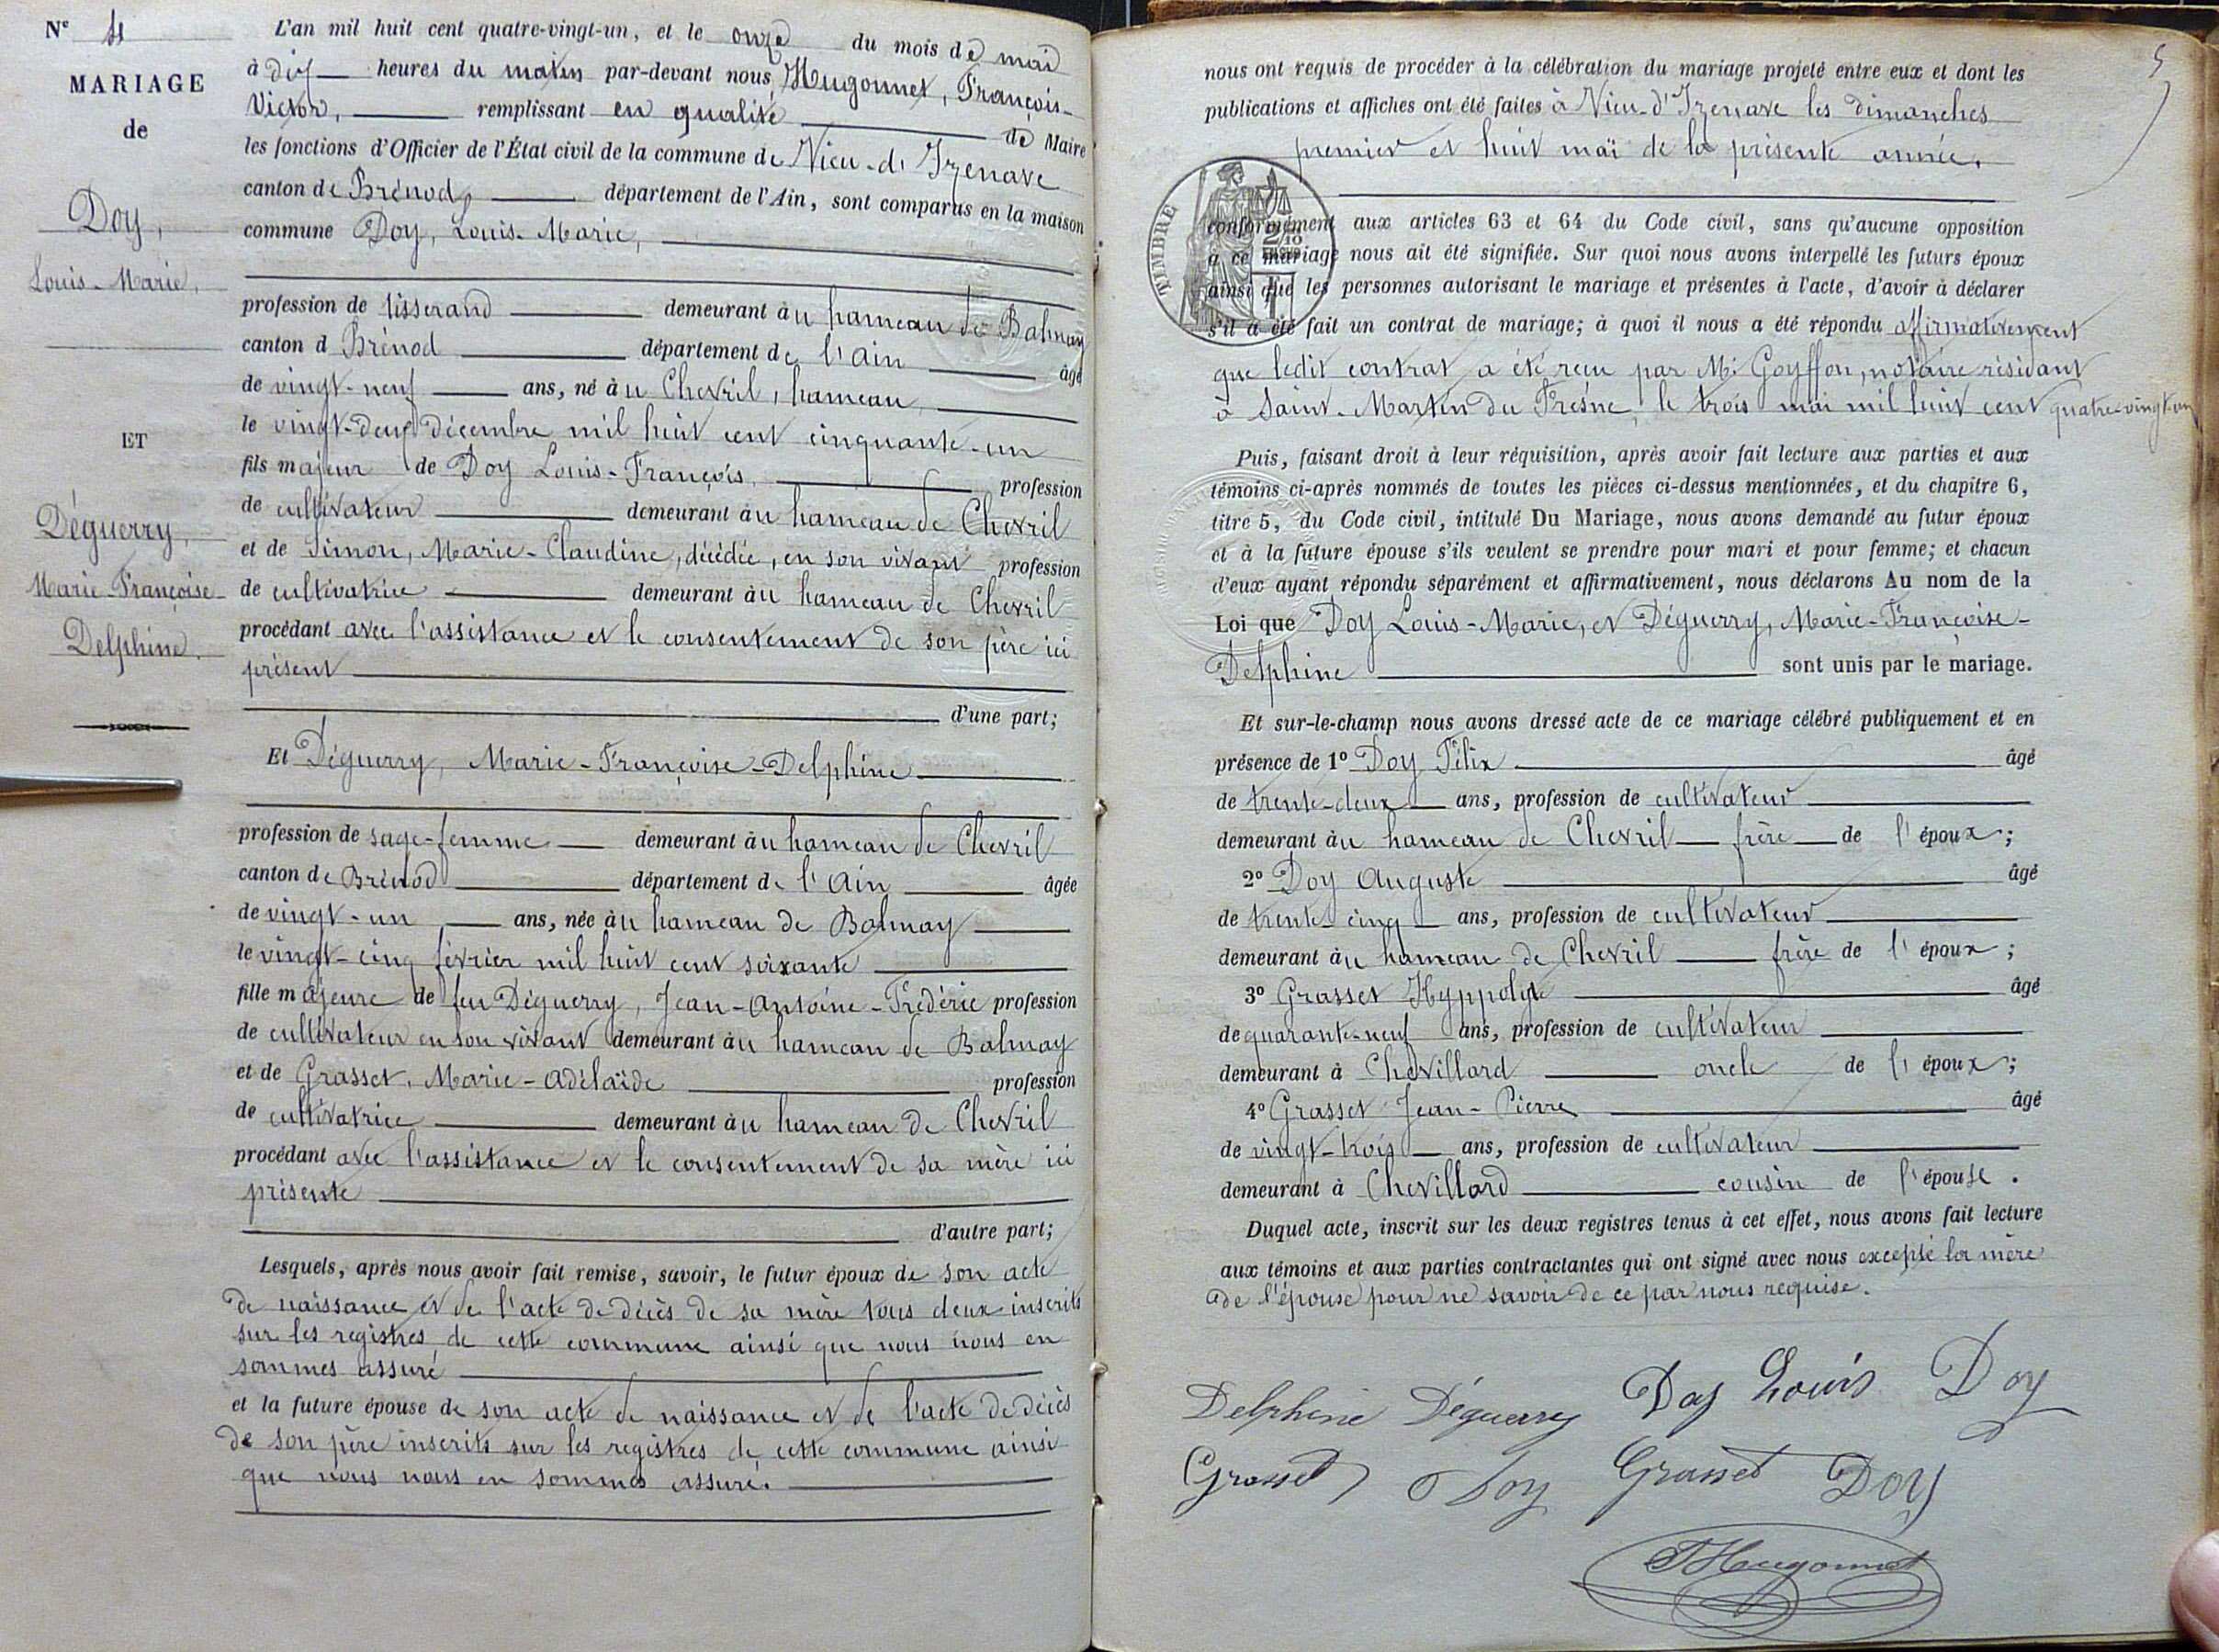 Nº 4
MARIAGE
de
Doy,
Louis-Marie,
ET
Déguerry,
Marie-Françoise-
Delphine.
L'an mil huit cent quatre-vingt-un, et le onze du mois de mai
à dix heures du matin par-devant nous, Hugonnet, François-
Victor, remplissant en qualité de Maire
les fonctions d'Officier de l'État civil de la commune de Vieu-d'Izenave
canton de Brénod, département de l'Ain, sont comparus en la maison
commune Doy, Louis-Marie,
profession de tisserand demeurant àu hameau de Balmay
canton d Brénod département de l'Ain âgé
de vingt-neuf ans, né àu Chevril, hameau,
le vingt-deux décembre mil huit cent cinquante-un
fils majeur de Doy Louis-François, profession
de cultivateur demeurant àu hameau de Chevril
et de Simon, Marie-Claudine, décédée, en son vivant profession
de cultivatrice demeurant àu hameau de Chevril
procédant avec l'assistance et le consentement de son père ici
présent
d'une part;
Et Déguerry, Marie-Françoise-Delphine
profession de sage-femme demeurant àu hameau de Chevril
canton de Brénod département de l'Ain âgée
de vingt-un ans, née àu hameau de Balmay
le vingt-cinq février mil huit cent soixante
fille majeure de feu Déguerry, Jean-Antoine-Frédéric profession
de cultivateur en son vivant demeurant àu hameau de Balmay
et de Grasset, Marie-Adélaïde profession
de cultivatrice demeurant àu hameau de Chevril
procédant avec l'assistance et le consentement de sa mère ici
présente
d'autre part;
Lesquels, après nous avoir fait remise, savoir, le futur époux de son acte
de naissance et de l'acte de décès de sa mère tous deux inscrits
sur les registres de cette commune ainsi que nous nous en
sommes assuré
et la future épouse de son acte de naissance et de l'acte de décès
de son père inscrits sur les registres de cette commune ainsi
que nous nous en sommes assuré.
5
nous ont requis de procéder à la célébration du mariage projeté entre eux et dont les
publications et affiches ont été faites à Vieu-d'Izenave les dimanches
premier et huit maï de la présente année,
TIMBRE
conformément aux articles 63 et 64 du Code civil, sans qu'aucune opposition
à ce mariage nous ait été signifiée. Sur quoi nous avons interpellé les futurs époux
ainsi que les personnes autorisant le mariage et présentes à l'acte, d'avoir à déclarer
s'il a été fait un contrat de mariage; à quoi il nous a été répondu affirmativement
que ledit contrat a été reçu par Me Goyffon, notaire résidant
à Saint-Martin du Fresne, le trois mai mil huit cent quatre-vingt-un
Puis, faisant droit à leur réquisition, après avoir fait lecture aux parties et aux
témoins ci-après nommés de toutes les pièces ci-dessus mentionnées, et du chapitre 6,
titre 5, du Code civil, intitulé Du Mariage, nous avons demandé au futur époux
et à la future épouse s'ils veulent se prendre pour mari et pour femme; et chacun
d'eux ayant répondu séparément et affirmativement, nous déclarons Au nom de la
Loi que Doy Louis-Marie, et Déguerry, Marie-Françoise-
Delphine sont unis par le mariage.
Et sur-le-champ nous avons dressé acte de ce mariage célébré publiquement et en
présence de 1º Doy Félix âgé
de trente-deux ans, profession de cultivateur
demeurant àu hameau de Chevril frère de l'époux;
2º Doy Auguste âgé
de trente-cinq ans, profession de cultivateur
demeurant àu hameau de Chevril frère de l'époux;
3º Grasset Hyppolyte âgé
de quarante-neuf ans, profession de cultivateur
demeurant à Chevillard oncle de l'époux;
4º Grasset Jean-Pierre âgé
de vingt-trois ans, profession de cultivateur
demeurant à Chevillard cousin de l'épouse.
Duquel acte, inscrit sur les deux registres tenus à cet effet, nous avons fait lecture
aux témoins et aux parties contractantes qui ont signé avec nous excepté la mère
de l'épouse pour ne savoir de ce par nous requise.
Delphine Déguerry Doy Louis Doy
Grasset Doy Grasset Doy
Hugonnet